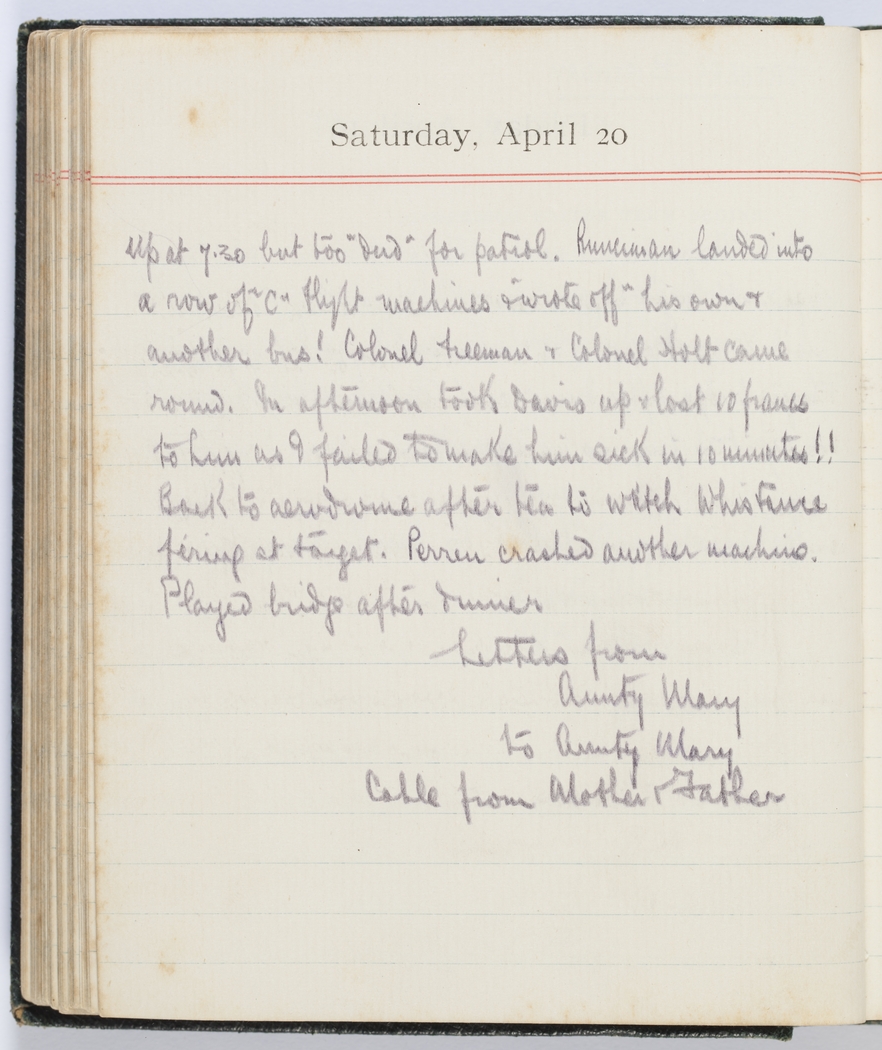 Saturday, April 20
Up at 7.30 but too "dud" for patrol. Runciman landed into
a row of "C" Flight machines & "wrote off" his own &
another bus! Colonel Freeman & Colonel Holt came
round. In afternoon took Davis up & lost 10 francs
to him as I failed to make him sick in 10 minutes!!
Back to aerodrome after tea to watch Whistance
firing at target. Perren crashed another machine.
Played bridge after dinner
Letters from
Aunty Mary
to Aunty Mary
Cable from Mother & Father